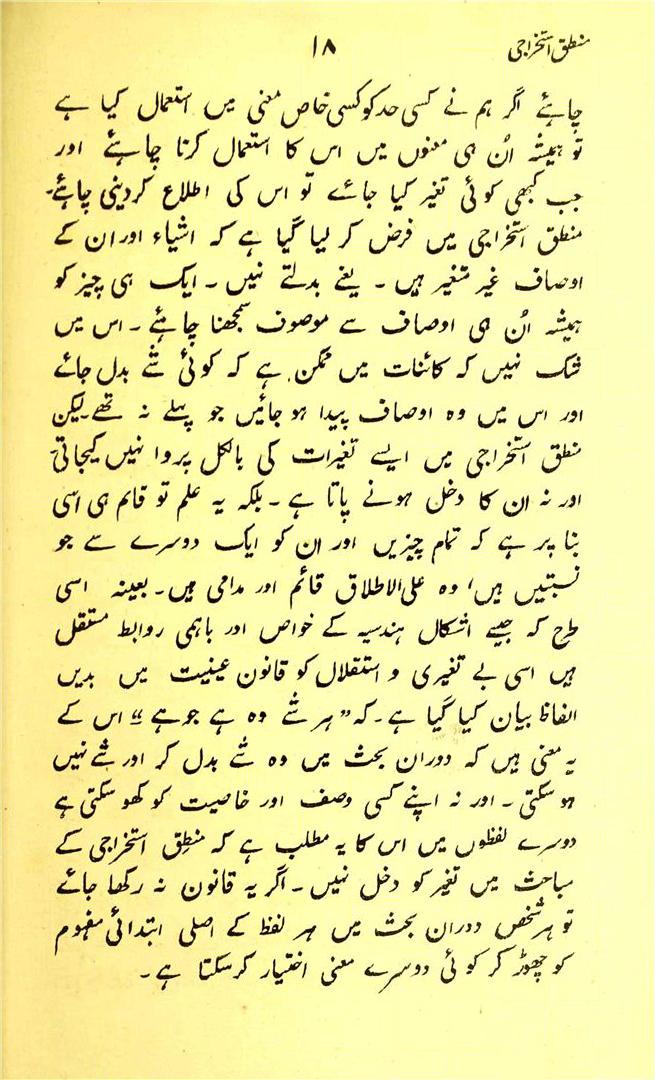 منطق استخراجی
۱۸
چاہئے اگر ہم نے کسی حد کو کسی خاص معنی میں استعمال کیا ہے
تو ہمیشہ اُن ہی معنوں میں اس کا استعمال کرنا چاہئے اور
جب کبھی کوئی تغیر کیا جائے تو اس کی اطلاع کردینی چاہئے۔
منطق استخراجی میں فرض کر لیا گیا ہے کہ اشیاء اور ان کے
اوصاف غیر متغیر ہیں ۔ یعنے بدلتے نہیں ۔ ایک ہی چیز کو
ہمیشہ اُن ہی اوصاف سے موصوف سمجھنا چاہئے ۔ اس میں
شک نہیں کہ کائنات میں ممکن ہے کہ کوئی شے بدل جائے
اور اس میں وہ اوصاف پیدا ہو جائیں جو پہلے نہ تھے۔ لیکن
منطق استخراجی میں ایسے تغیرات کی بالکل پروا نہیں کیجاتی۔
اور نہ ان کا دخل ہونے پاتا ہے ۔ بلکہ یہ علم تو قائم ہی اسی
بنا پر ہے کہ تمام چیزیں اور ان کو ایک دوسرے سے جو
نسبتیں ہیں، وہ علی الاطلاق قائم اور مدامی ہیں ۔ بعینہ اسی
طرح کہ جیسے اشکال ہندسیہ کے خواص اور باہمی روابط مستقل
ہیں اسی بے تغیری و استقلال کو قانون عینیت میں بدیں
الفاظ بیان کیا گیا ہے ۔ کہ ”ہر شے وہ ہے جو ہے“ اس کے
یہ معنی ہیں کہ دوران بحث میں وہ شے بدل کر اور شے نہیں
ہو سکتی ۔ اور نہ اپنے کسی وصف اور خاصیت کو کھو سکتی ہے
دوسرے لفظوں میں اس کا یہ مطلب ہے کہ منطق استخراجی کے
مباحث میں تغیر کو دخل نہیں ۔ اگر یہ قانون نہ رکھا جائے
تو ہر شخص دوران بحث میں ہر لفظ کے اصلی ابتدائی مفہوم
کو چھوڑ کر کوئی دوسرے معنی اختیار کرسکتا ہے ۔